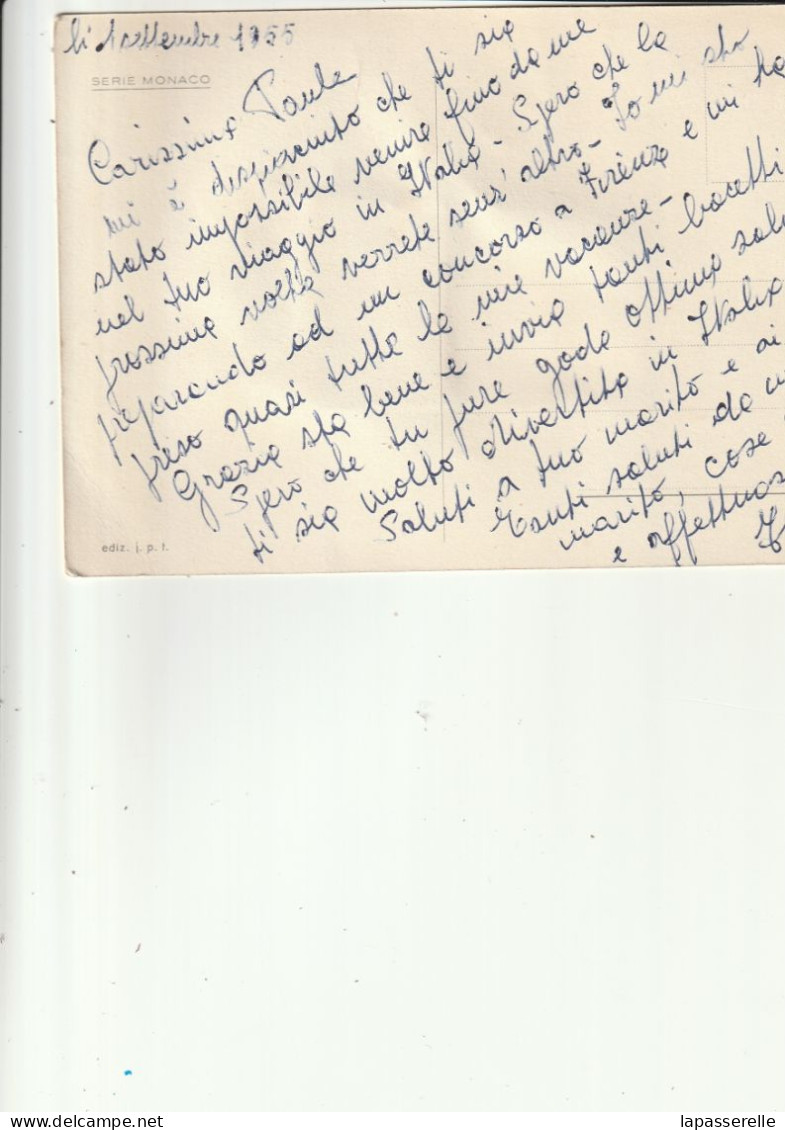 li 1 settembre 1955
SERIE MONACO
Carissima Paula
mi è dispiaciuto che ti sia
stato impossibile venire fino da me
nel tuo viaggio in Italia - Spero che la
prossima volta verrete senz'altro - Io mi sto
preparando ad un concorso a Firenze e mi ha
preso quasi tutte le mie vacanze -
Grazia sta bene e invia tanti bacetti
Spero che tu pure goda ottima
ti sia molto divertita in Italia
Saluti a tuo marito e ai
Tanti saluti da
marito, cose
e
ediz. j. p. t.
lapasserelle